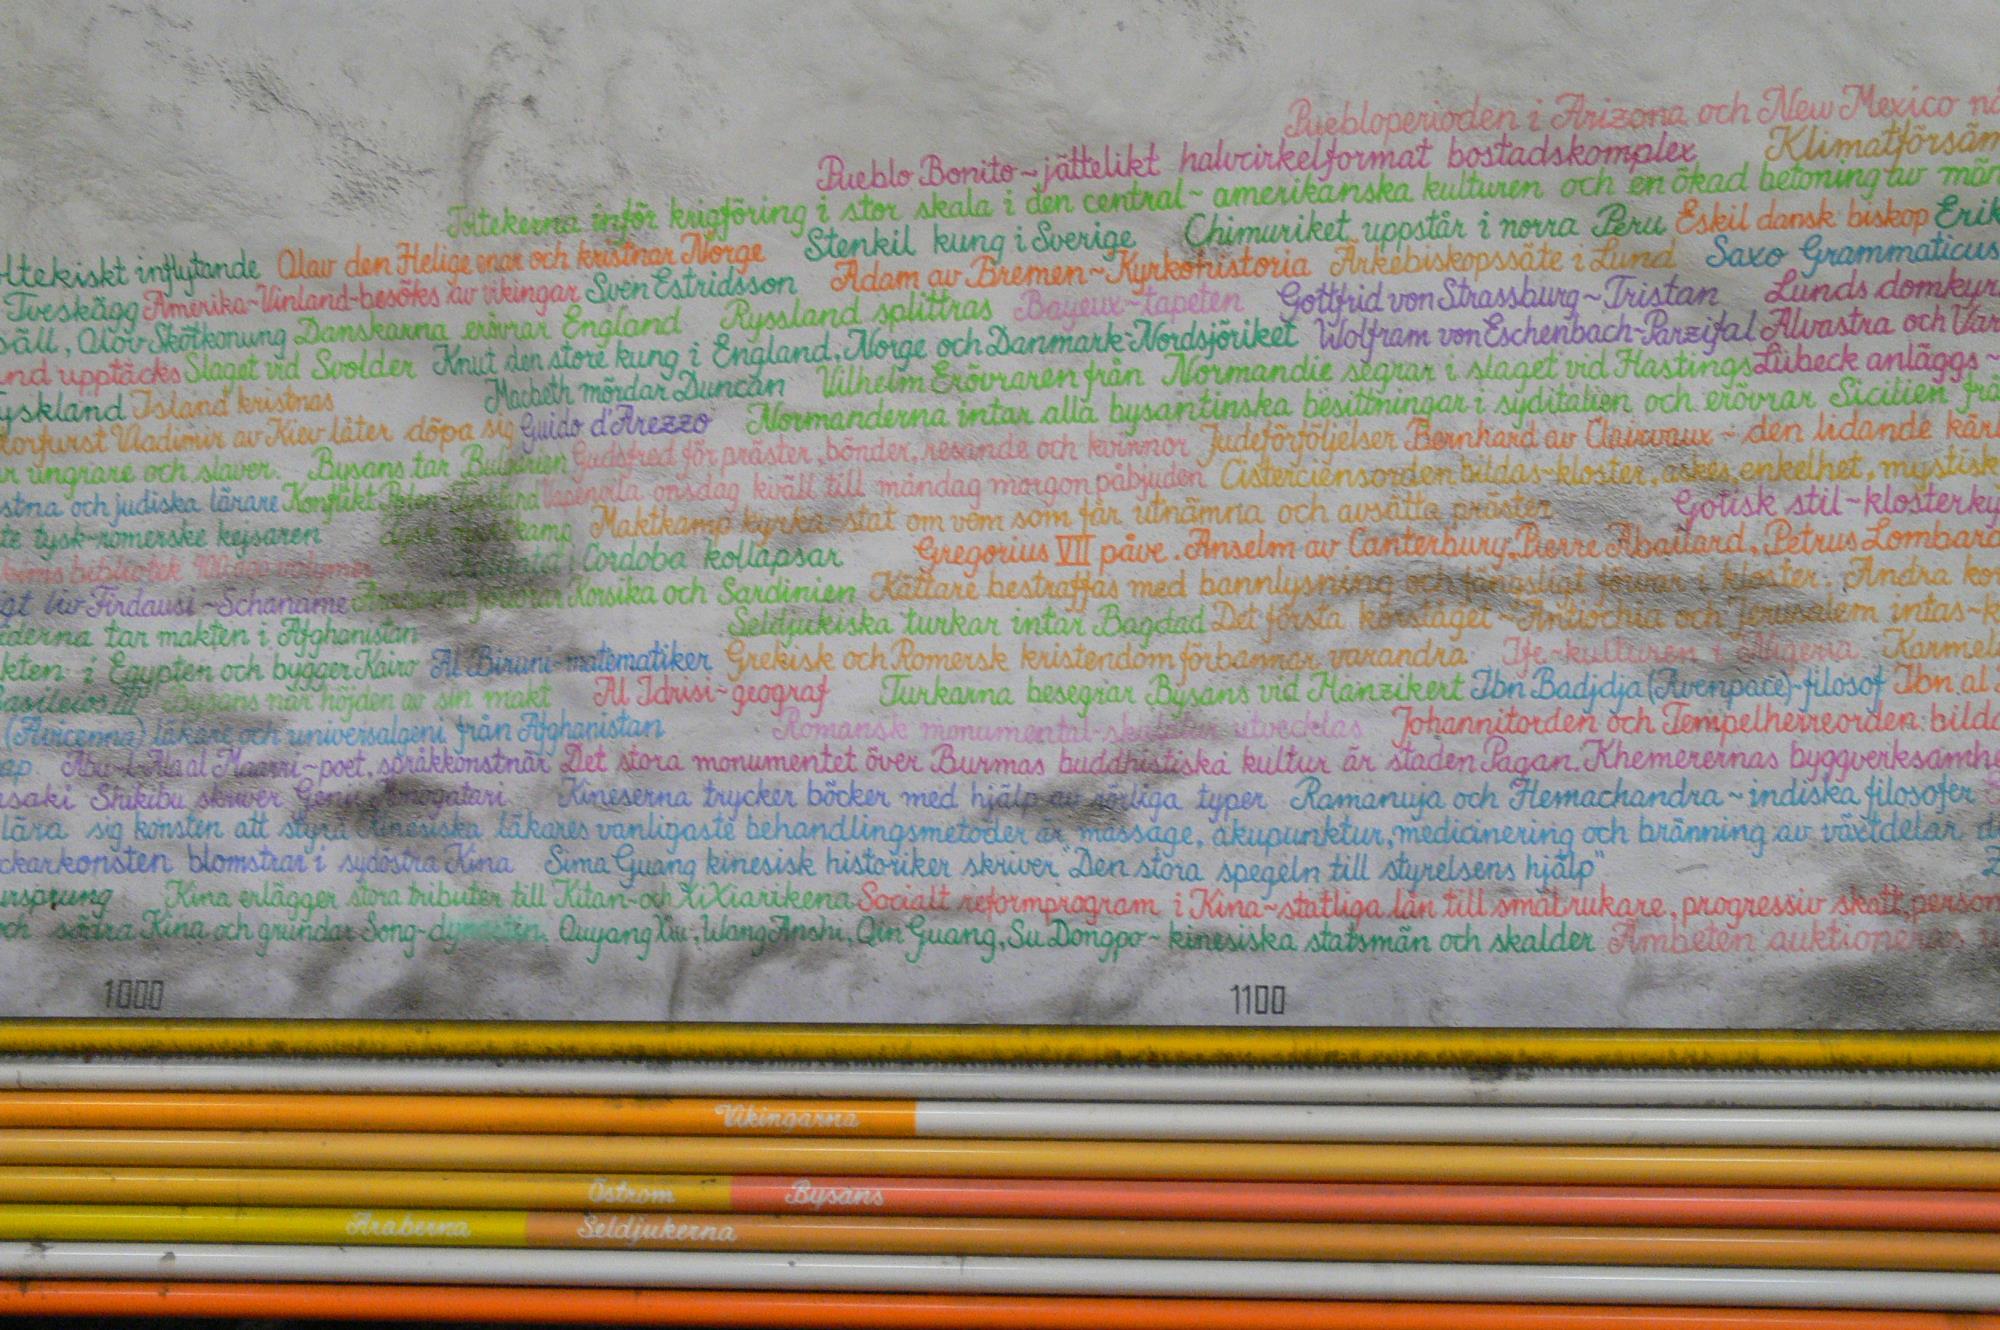 Puebloperioden i Arizona och New Mexico nå
Pueblo Bonito~jättelikt halvcirkelformat bostadskomplex Klimatförsäm
Toltekerna inför krigföring i stor skala i den central~amerikanska kulturen och en ökad betoning av män
ltekiskt inflytande Olav den Helige enar och kristnar Norge Stenkil kung i Sverige Chimuriket uppstår i norra Peru Eskil dansk biskop Erik
Tveskägg Amerika-Vinland-besöks av vikingar Sven Estridsson Adam av Bremen~Kyrkohistoria Ärkebiskopssäte i Lund Saxo Grammaticus
säll, Olov Skötkonung Danskarna erövrar England Ryssland splittras Bayeux~tapeten Gottfrid von Strassburg~Tristan Lunds domkyr
nd upptäcks Slaget vid Svolder Knut den store kung i England, Norge och Danmark-Nordsjöriket Wolfram von Eschenbach~Parzifal Alvastra och Var
yskland Island kristnas Macbeth mördar Duncan Vilhelm Erövraren från Normandie segrar i slaget vid Hastings Lübeck anläggs~
torfurst Vladimir av Kiev låter döpa sig Guido d'Arezzo Normanderna intar alla bysantinska besittningar i syditalien och erövrar Sicilien frå
r ungrare och slaver. Bysans tar Bulgarien Gudsfred för präster, bönder, resande och kvinnor Judeförföljelser Bernhard av Clairvaux~den lidande kärl
stna och judiska lärare Konflikt Polen-Tyskland Vapenvila onsdag kväll till måndag morgon påbjuden Cisterciensorden bildas~kloster, askes, enkelhet, mystisk
te tysk-romerske kejsaren Maktkamp kyrka~stat om vem som får utnämna och avsätta präster Gotisk stil~klosterky
bibliotek 400.000 volymer Cordoba kollapsar Gregorius VII påve. Anselm av Canterbury, Pierre Abailard, Petrus Lombard
gt liv Firdausi~Schaname Korsika och Sardinien Kättare bestraffas med bannlysning och fängsligt förvar i kloster. Andra ko
iderna tar makten i Afghanistan Seldjukiska turkar intar Bagdad Det första korståget~Antiochia och Jerusalem intas~k
kten i Egypten och bygger Kairo Al Biruni~matematiker Grekisk och Romersk kristendom förbannar varandra Ife~kulturen i Nigeria Karmel
Basileios II Bysans når höjden av sin makt Al Idrisi~geograf Turkarna besegrar Bysans vid Manzikert Ibn Badjdja (Avenpace)~filosof Ibn al
(Avicenna) läkare och universalgeni från Afghanistan Romansk monumental-skulptur utvecklas Johannitorden och Tempelherreorden bilda
ap. Abu-l-Ala al Maarri~poet, språkkonstnär Det stora monumentet över Burmas buddhistiska kultur är staden Pagan. Khemerernas byggverksamhe
asaki Shikibu skriver Genji Monogatari Kineserna trycker böcker med hjälp av rörliga typer Ramanuja och Hemachandra~indiska filosofer
lära sig konsten att styra Kinesiska läkares vanligaste behandlingsmetoder är massage, akupunktur, medicinering och bränning av växtdelar
ckarkonsten blomstrar i sydöstra Kina Sima Guang kinesisk historiker skriver "Den stora spegeln till styrelsens hjälp"
ursprung Kina erlägger stora tributer till Kitan-och XiXiarikena Socialt reformprogram i Kina~statliga lån till småbrukare, progressiv skatt, person
och södra Kina och grundar Song-dynastin. Ouyang Xiu, Wang Anshi, Qin Guang, Su Dongpo~kinesiska statsmän och skalder Ämbeten auktioneras
1000 1100
Vikingarna
Östrom Bysans
Araberna Seldjukerna